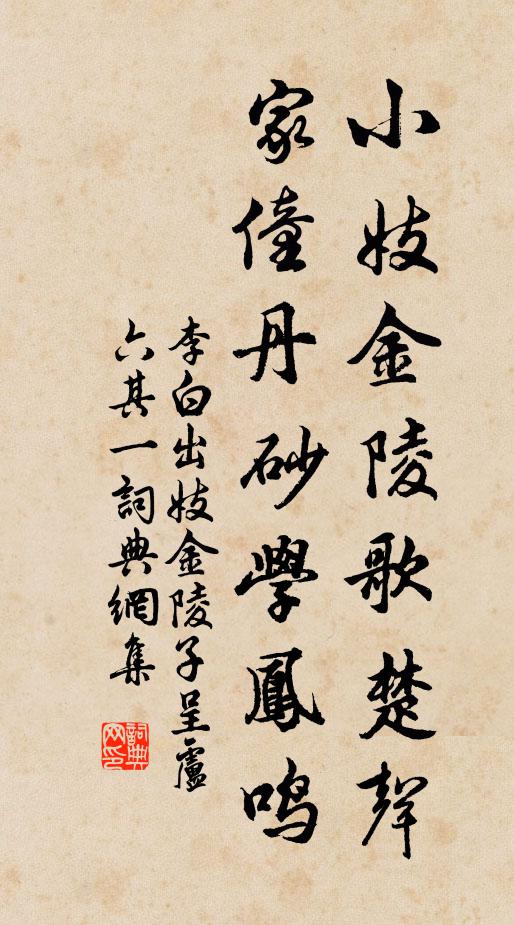 小妓金陵歌楚聲
家僮丹砂學鳳鳴
李白出妓金陵子呈盧
六其一詞典網集
詞典
网印